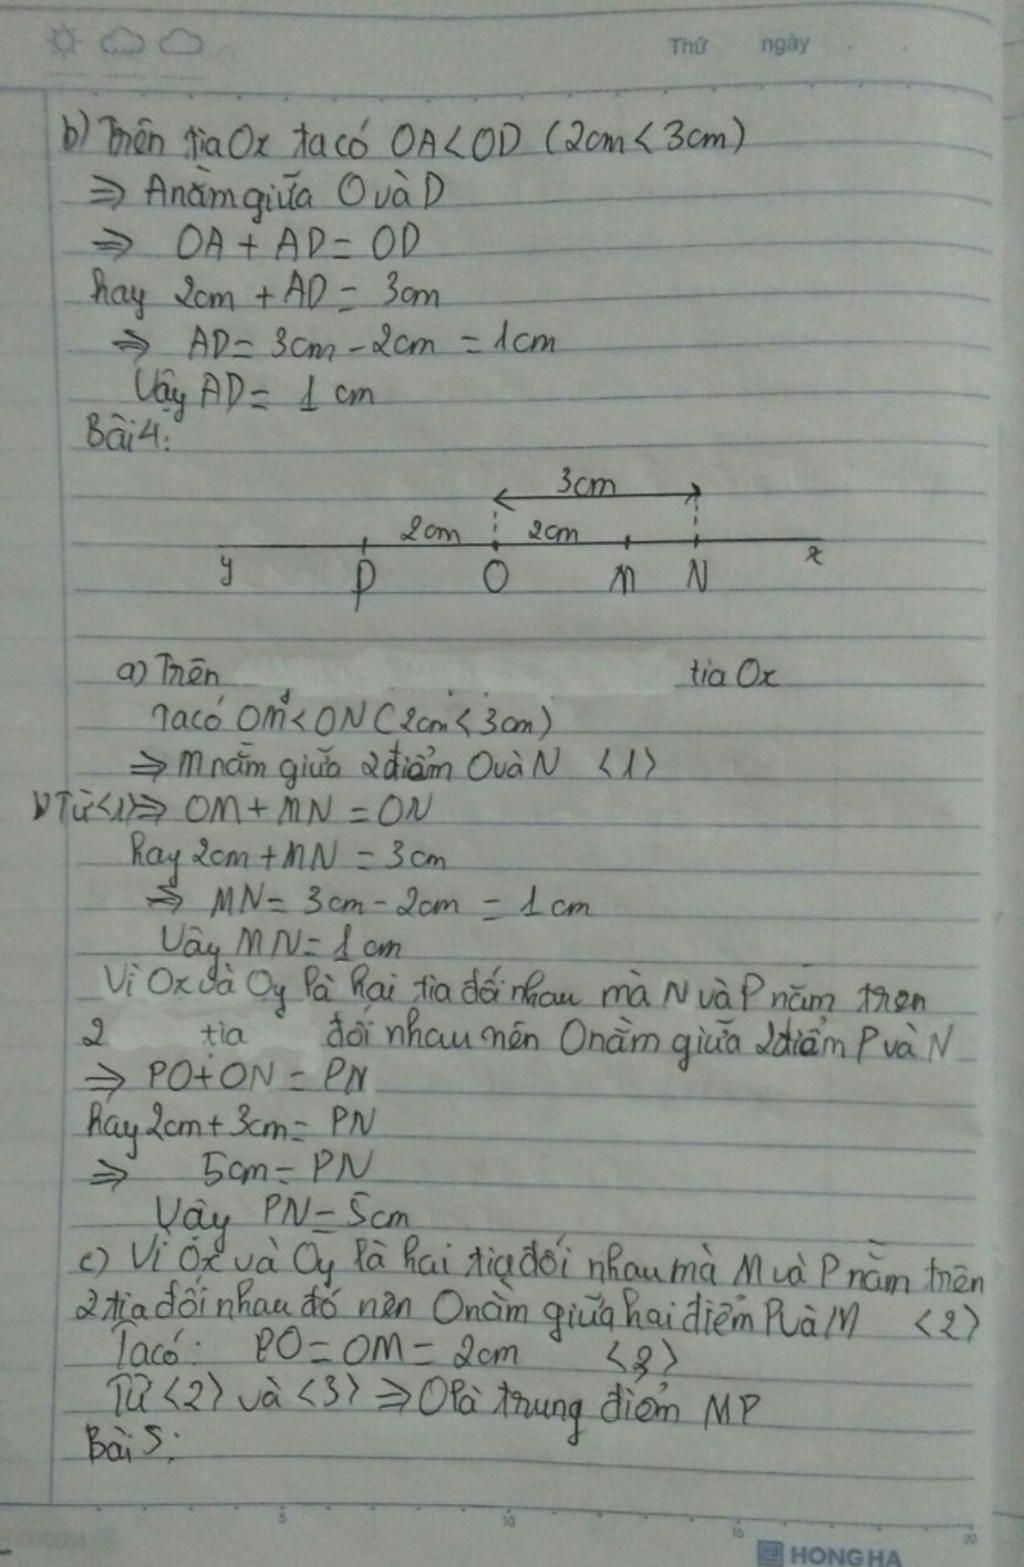 Thứ ngày
b) Trên tia Ox ta có OA < OD (2cm < 3cm)
⇒ A nằm giữa O và D
⇒ OA + AD = OD
hay 2cm + AD = 3cm
⇒ AD = 3cm - 2cm = 1cm
Vậy AD = 1 cm
Bài 4:
3cm
2cm 2cm
y P O M N x
a) Trên tia Ox
Ta có OM < ON (2cm < 3cm)
⇒ M nằm giữa 2 điểm O và N <1>
b) Từ <1> ⇒ OM + MN = ON
hay 2cm + MN = 3cm
⇒ MN = 3cm - 2cm = 1cm
Vậy MN = 1cm
Vì Ox và Oy là hai tia đối nhau mà N và P nằm trên
2 tia đối nhau nên O nằm giữa 2 điểm P và N
⇒ PO + ON = PN
hay 2cm + 3cm = PN
⇒ 5cm = PN
Vậy PN = 5cm
c) Vì Ox và Oy là hai tia đối nhau mà M và P nằm trên
2 tia đối nhau đó nên O nằm giữa hai điểm P và M <2>
Ta có: PO = OM = 2cm <3>
Từ <2> và <3> ⇒ O là trung điểm MP
Bài 5:
5 10 15 20
HONG HA